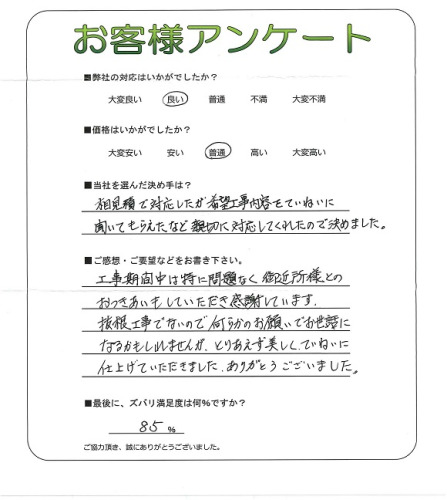 お客様アンケート
■弊社の対応はいかがでしたか?
大変良い 良い 普通 不満 大変不満
■価格はいかがでしたか?
大変安い 安い 普通 高い 大変高い
■当社を選んだ決め手は?
相見積で対応したが希望工事内容をていねいに
聞いてもらえたなど親切に対応してくれたので決めました。
■ご感想・ご要望などをお書き下さい。
工事期間中は特に問題なく御近所様との
おつきあいもしていただき感謝しています。
抜根工事でないので何らかのお願いでお世話に
なるかもしれませんが、とりあえず美しく、ていねいに
仕上げていただきました。ありがとうございました。
■最後に、ズバリ満足度は何%ですか?
85 %
ご協力頂き、誠にありがとうございました。